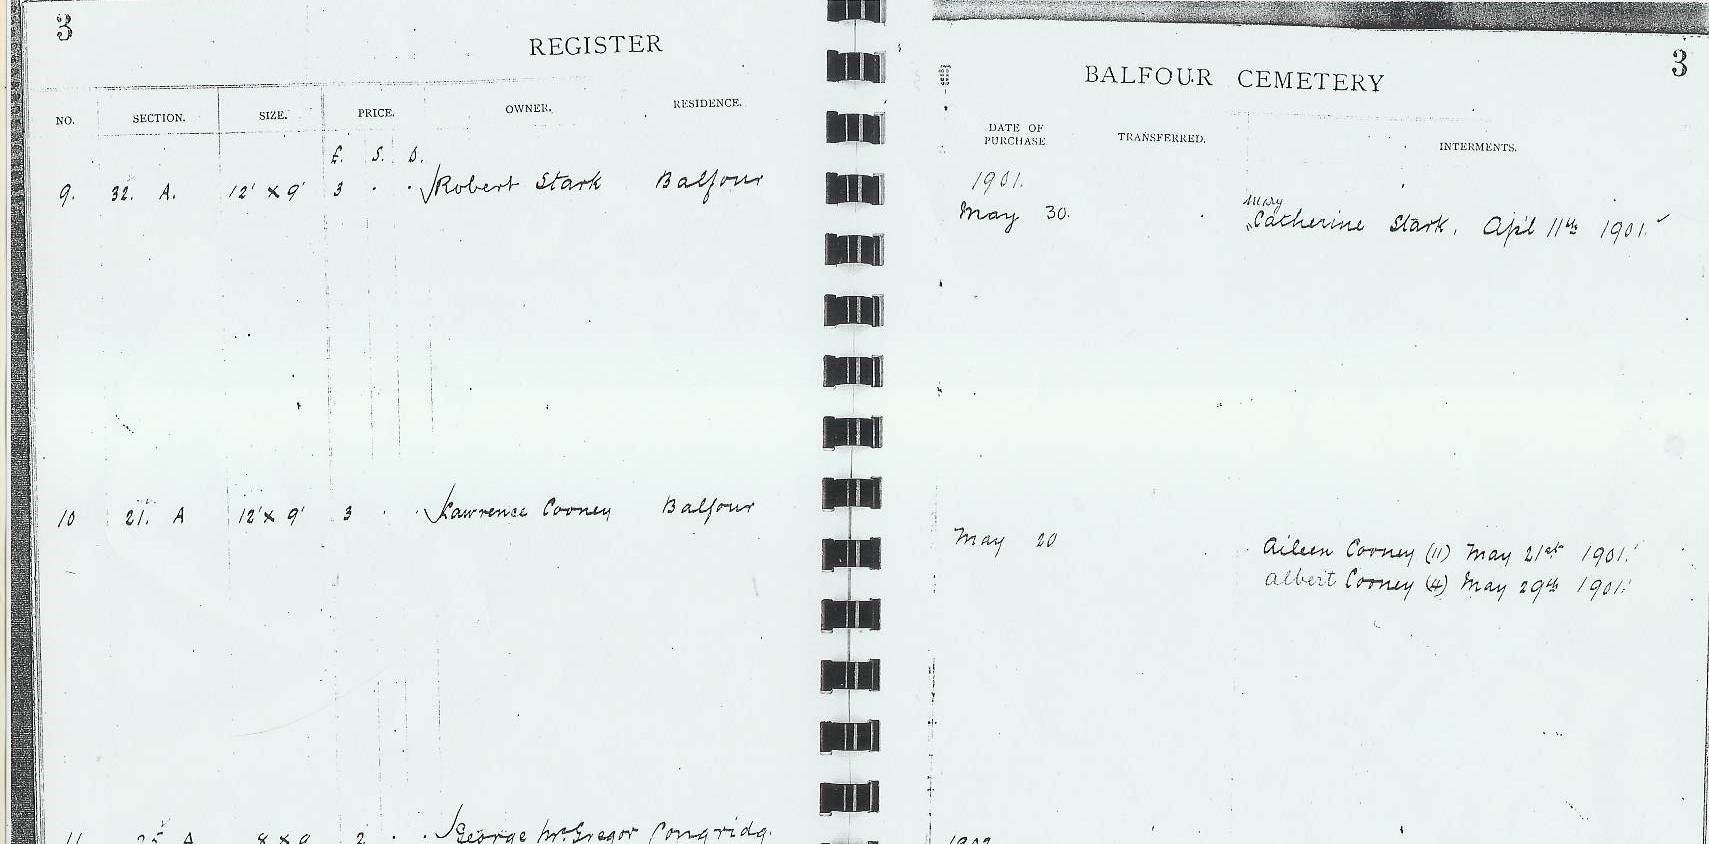 3
REGISTER
NO. SECTION. SIZE. PRICE. OWNER. RESIDENCE.
£. S. D.
9. 32. A. 12' x 9' 3 . . Robert Stark Balfour
10 21. A 12' x 9' 3 . . Lawrence Cooney Balfour
11 25 A 8 x 9 2 . . George McGregor Longridge
BALFOUR CEMETERY
3
DATE OF PURCHASE TRANSFERRED. INTERMENTS.
1901.
May 30.
Mary
Catherine Stark, Apl 11th 1901.
May 20
Aileen Cooney (11) May 21st 1901.
Albert Cooney (4) May 29th 1901.